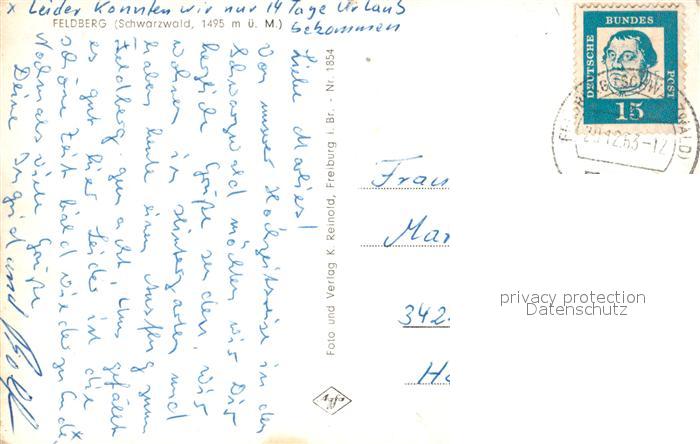 x Leider konnten wir nur 14 Tage Urlaub
bekommen
FELDBERG (Schwarzwald, 1495 m ü. M.)
Liebe Marlies!
Von unserer Hochzeitsreise in den
Schwarzwald möchten wir Dir
herzliche Grüße senden. Wir
wohnen in Hinterzarten und
haben heute einen Ausflug zum
Feldberg gemacht. Uns gefällt
es gut hier. Leider ist die
schöne Zeit bald wieder zu Ende. x
Nochmals viele Grüße
Deine Ingrid und Rolf
Foto und Verlag K. Reinold, Freiburg i. Br. - Nr. 1854
Agfa
DEUTSCHE BUNDES POST
15
20.12.63-12
WALD)
Frau
Mar
342
Ho
privacy protection
Datenschutz